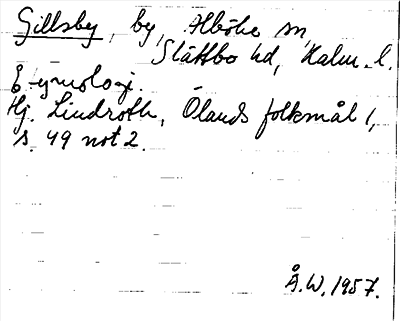 Gillsby, by, Alböke sn,
Slättbo hd, Kalm. l.
Etymologi.
Hj. Lindroth, Ölands folkmål 1,
s. 49 not 2.
Å.W. 1957.